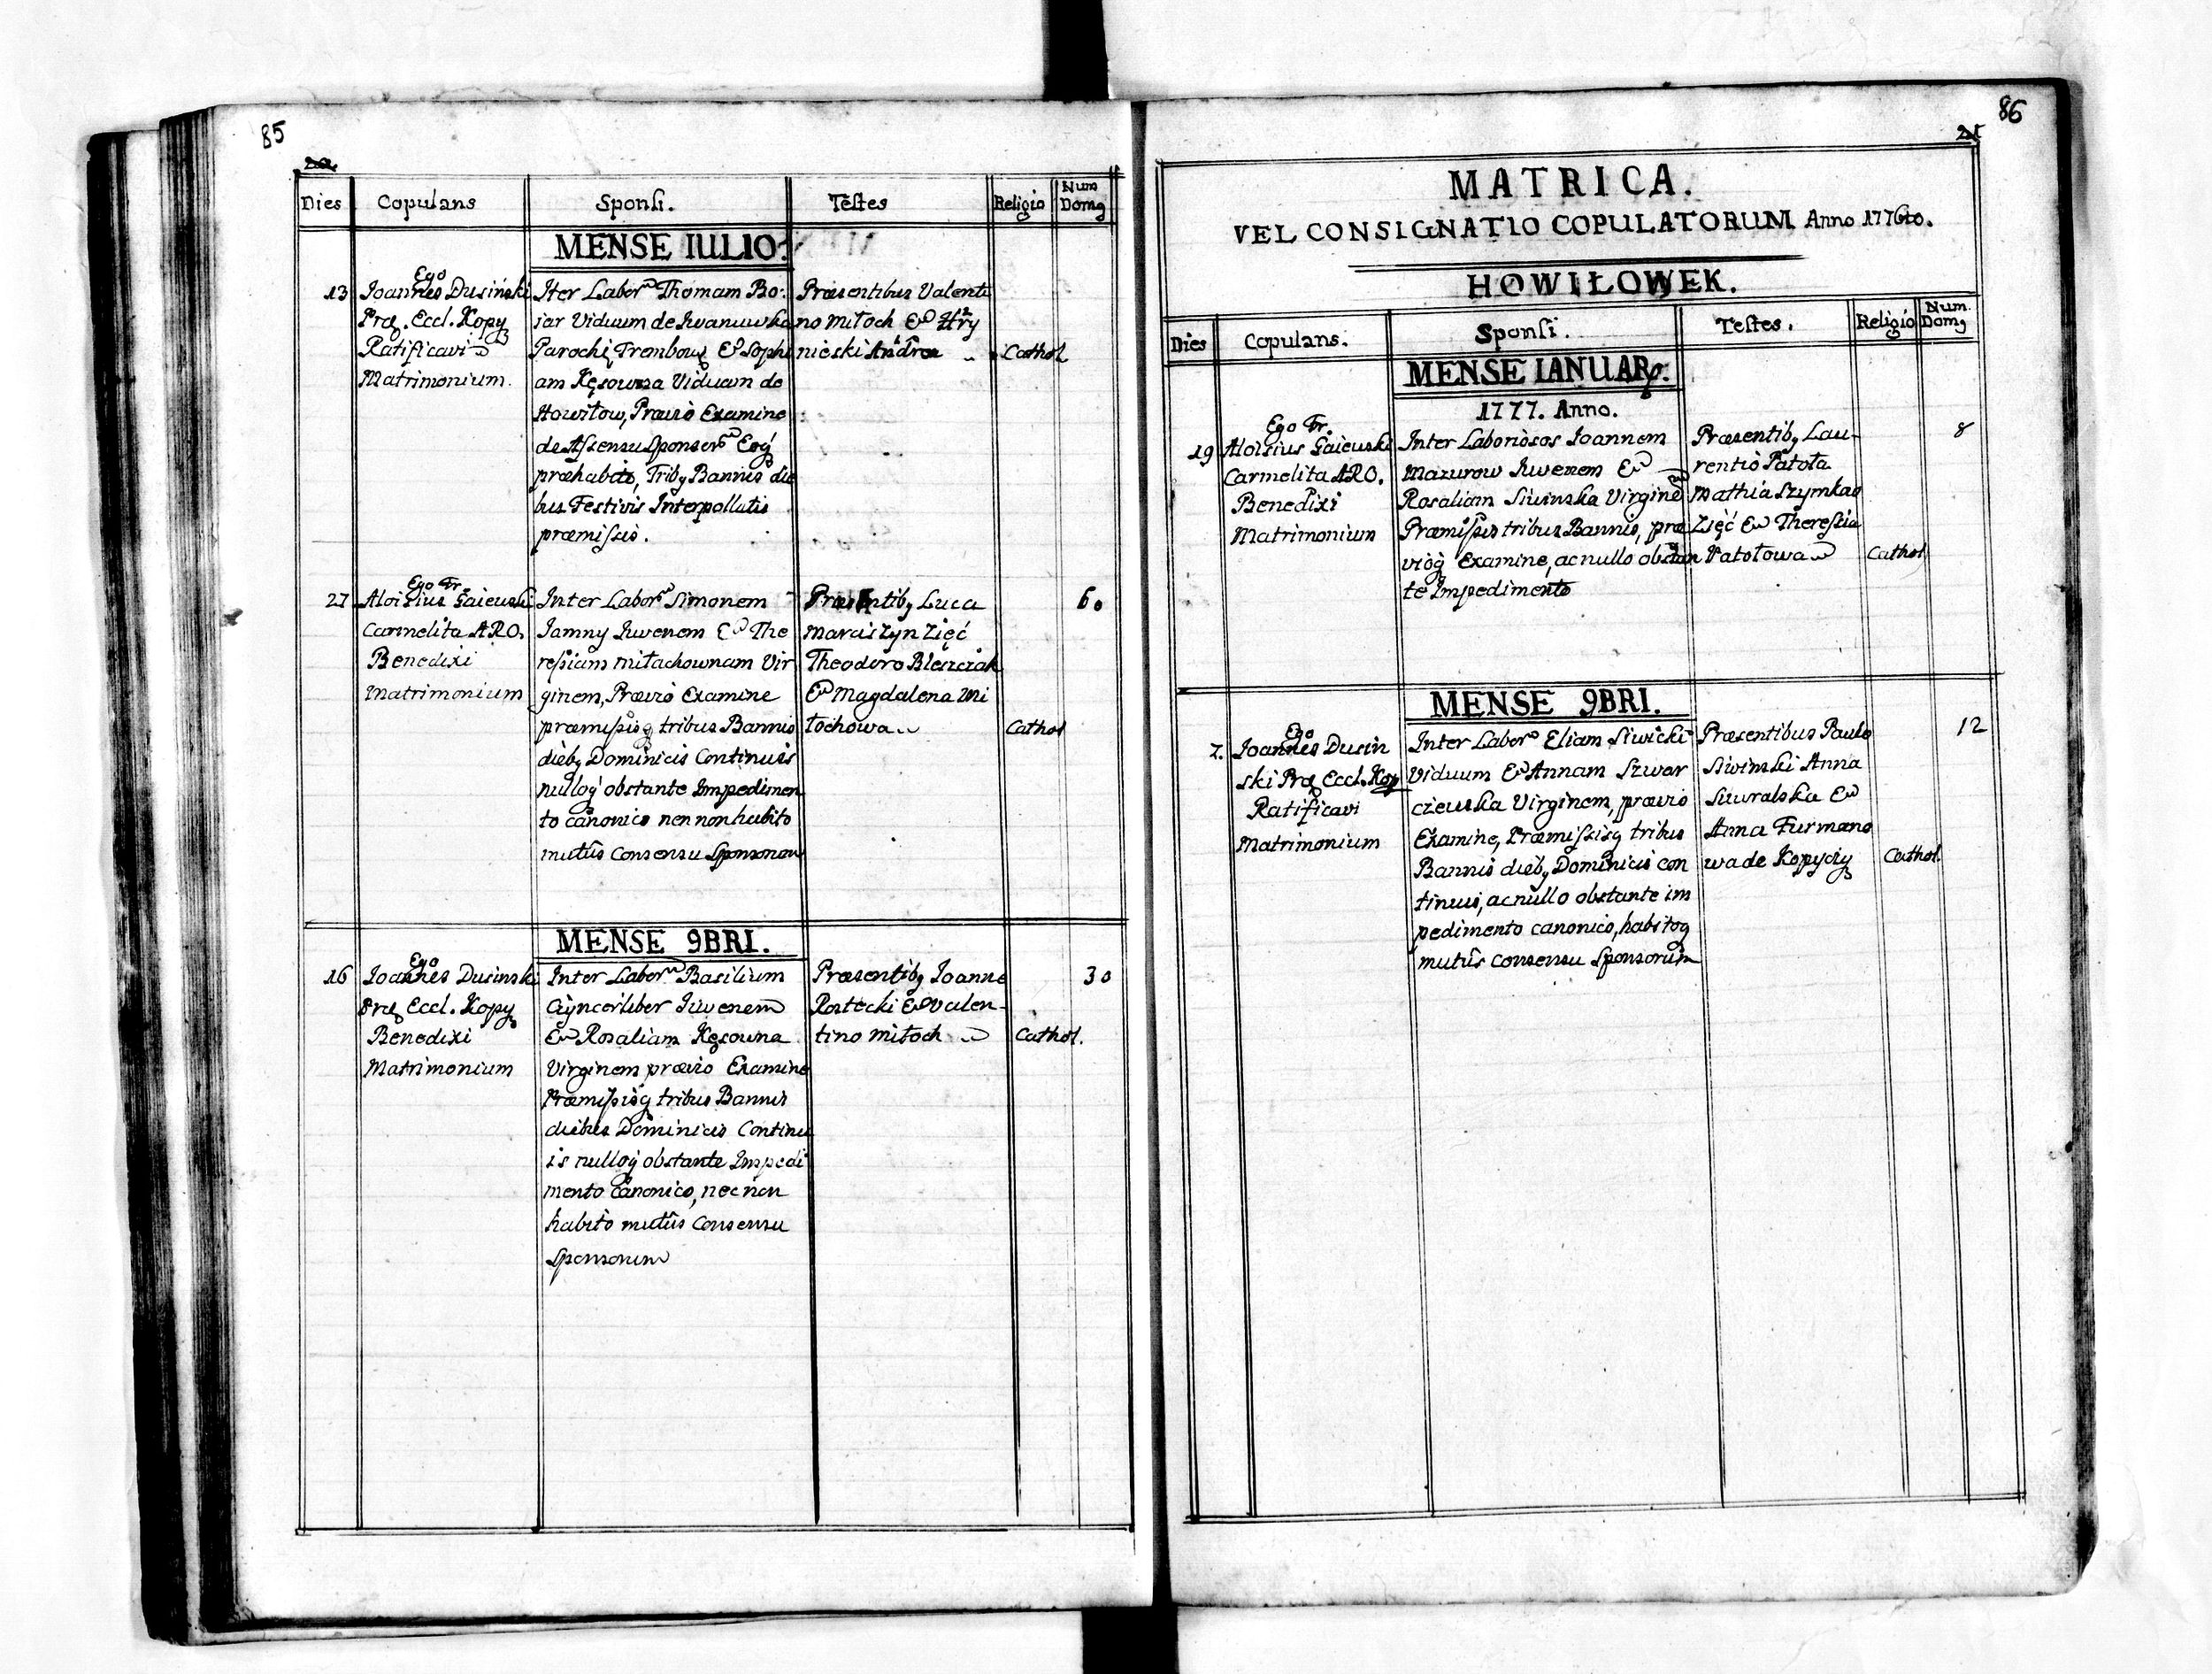 85
Dies Copulans Sponsi. Testes Religio Num Domq
MENSE IULIO.
13
Ego
Joannes Dusiński
Præ. Eccl. Kopy
Ratificavi
Matrimonium.
Iter Labor Thomam Bo:
iar Viduum de Iwanuwka
Parochię Trembow & Sophi
am Kęsowna Viduam de
Howiłow, Prævio Examine
de Assensu Sponsor Eoq
præhabito, Tribq Bannis die
bus Festivis Interpollatis
præmissis.
Præsentibus Valenti
no Miłoch & Hry
nieski Andrea
Cathol
27
Ego Fr.
Aloisius Gaiewski
Carmelita A.R.O.
Benedixi
Matrimonium
Inter Labor Simonem
Jamny Iuvenem & The
resiam Miłachownam Vir
ginem, Prævio Examine
præmissisq tribus Bannis
diebq Dominicis Continuis
nulloq obstante Impedimen
to canonico nen non habito
mutuo Consensu Sponsorum
Præsentibq Luca
Marciszyn Zięć
Theodoro Bleszczak
& Magdalena Mi
łochowa
Cathol
60
MENSE 9BRI.
16
Ego
Joannes Dusinski
Præ Eccl. Kopy
Benedixi
Matrimonium
Inter Labor Basilium
Cyncerliber Iuvenem
& Rosaliam Kęsowna
Virginem prævio Examine
Præmissisq tribus Bannis
diebus Dominicis Continu
is nulloq obstante Impedi
mento canonico, nec non
habito mutuo Consensu
Sponsorum
Præsentibq Joanne
Rostecki & Valen-
tino Miłoch
Cathol.
30
86
21
MATRICA.
VEL CONSIGNATIO COPULATORUM Anno 1776to.
HOWIŁOWEK.
Dies Copulans. Sponsi. Testes. Religio Num. Domq
MENSE IANUAR.
1777. Anno.
19
Ego Fr.
Aloisius Gaiewski
Carmelita A.R.O.
Benedixi
Matrimonium
Inter Laboriosos Joannem
Mazurow Iuvenem &
Rosaliam Siwinska Virginem
Præmissis tribus Bannis, præ
vioq Examine, ac nullo obstan
te Impedimento
Præsentibq Lau-
rentio Patoła
Mathia Szymkao
Zięć & Theressia
Patołowa
Cathol
8
MENSE 9BRI.
7.
Ego
Joannes Dusin
ski Præ Eccl. Kop
Ratificavi
Matrimonium
Inter Labor Eliam Siwicki
Viduum & Annam Szwer
czewska Virginem, prævio
Examine, Præmissisq tribus
Bannis diebq Dominicis con
tinuis, ac nullo obstante im
pedimento canonico, habitoq
mutuo consensu Sponsorum
Præsentibus Paulo
Siwinski Anna
Suuralska &
Anna Furmano
wa de Kopyczy
Cathol.
12